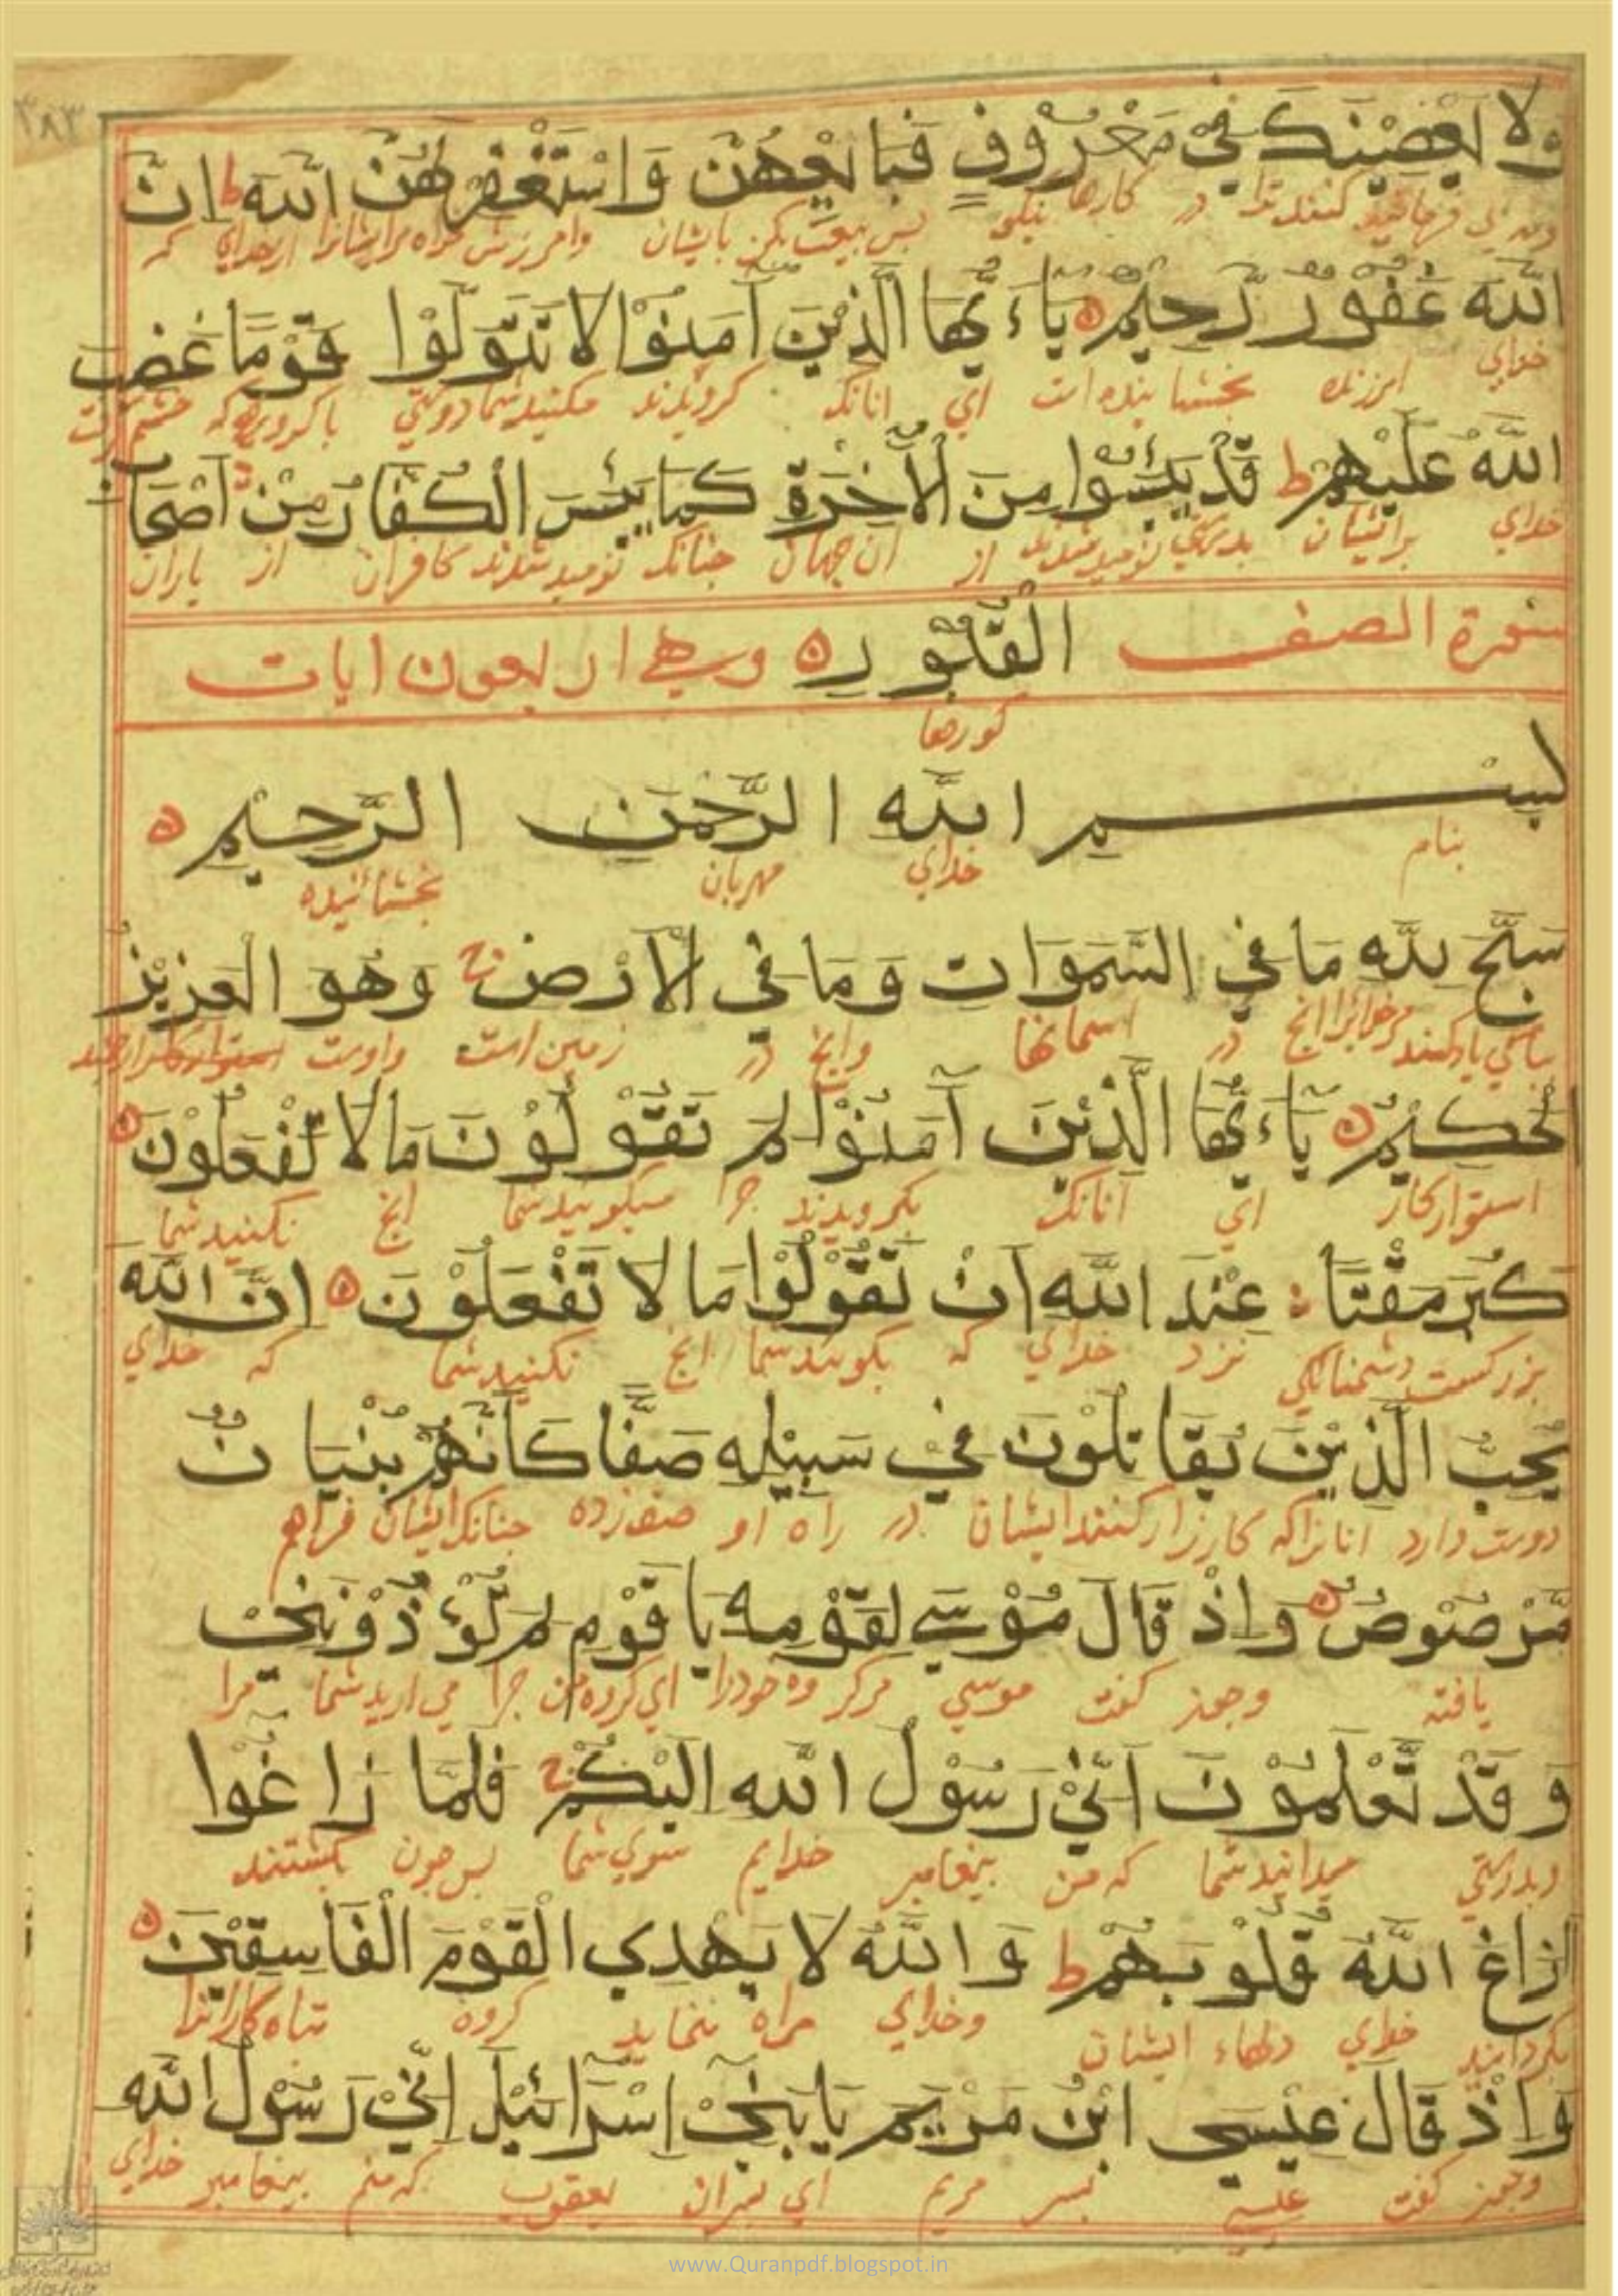 ٣٨٣
ولا يعصينك في معروف فبايعهن واستغفر لهن الله ط ان
كنند ترا در كارها نيكى پس بيعت بكن بايشان از خداي كه
الله غفور رحيم ياءيها الذين آمنوا لا تتولوا قوما غضب
خداي بخشاينده است اي انانكه گرويدند مكنيد شما دوستي با گروهى كه
الله عليهم ط قد يئسوا من الآخرة كما يئس الكفار من اصحاب
خداي برايشان از ان جهان چنانكه نوميد شدند كافران از ياران
سورة الصف القبور وهي اربعون ايات
گورها
بسم الله الرحمن الرحيم
بنام خداي مهربان بخشائنده
سبح لله ما في السموات وما في الارض ج وهو العزيز
در اسمانها وانچ در زمين است واوست
الحكيم ياءيها الذين آمنوا لم تقولون ما لا تفعلون
استوار كار اي انانكه بگرويدند چرا ميگوييد شما انچ نكنيد شما
كبر مقتا عند الله ان تقولوا ما لا تفعلون ان الله
نزد خداي كه بگوييد شما انچ نكنيد شما كه خداي
يحب الذين يقاتلون في سبيله صفا كأنهم بنيان
دوست دارد انانرا كه كارزار كنند ايشان در راه او صف زده چنانكه ايشان فراهم
مرصوص واذ قال موسي لقومه يا قوم لم تؤذونني
يافته وچون گفت موسي مر گروه خود را اي گروه من چرا مي ازاريد شما مرا
وقد تعلمون اني رسول الله اليكم ج فلما زاغوا
وبدرستي ميدانيد شما كه من پيغامبر خدايم سوي شما پس چون بگشتند
ازاغ الله قلوبهم ط والله لا يهدي القوم الفاسقين
بگردانيد خداي دلهاء ايشان وخداي راه ننمايد گروه تباه كارانرا
واذ قال عيسى ابن مريم يا بني اسرائيل اني رسول الله
وچون گفت عيسي پسر مريم اي پسران يعقوب كه منم پيغامبر خداي
www.Quranpdf.blogspot.in